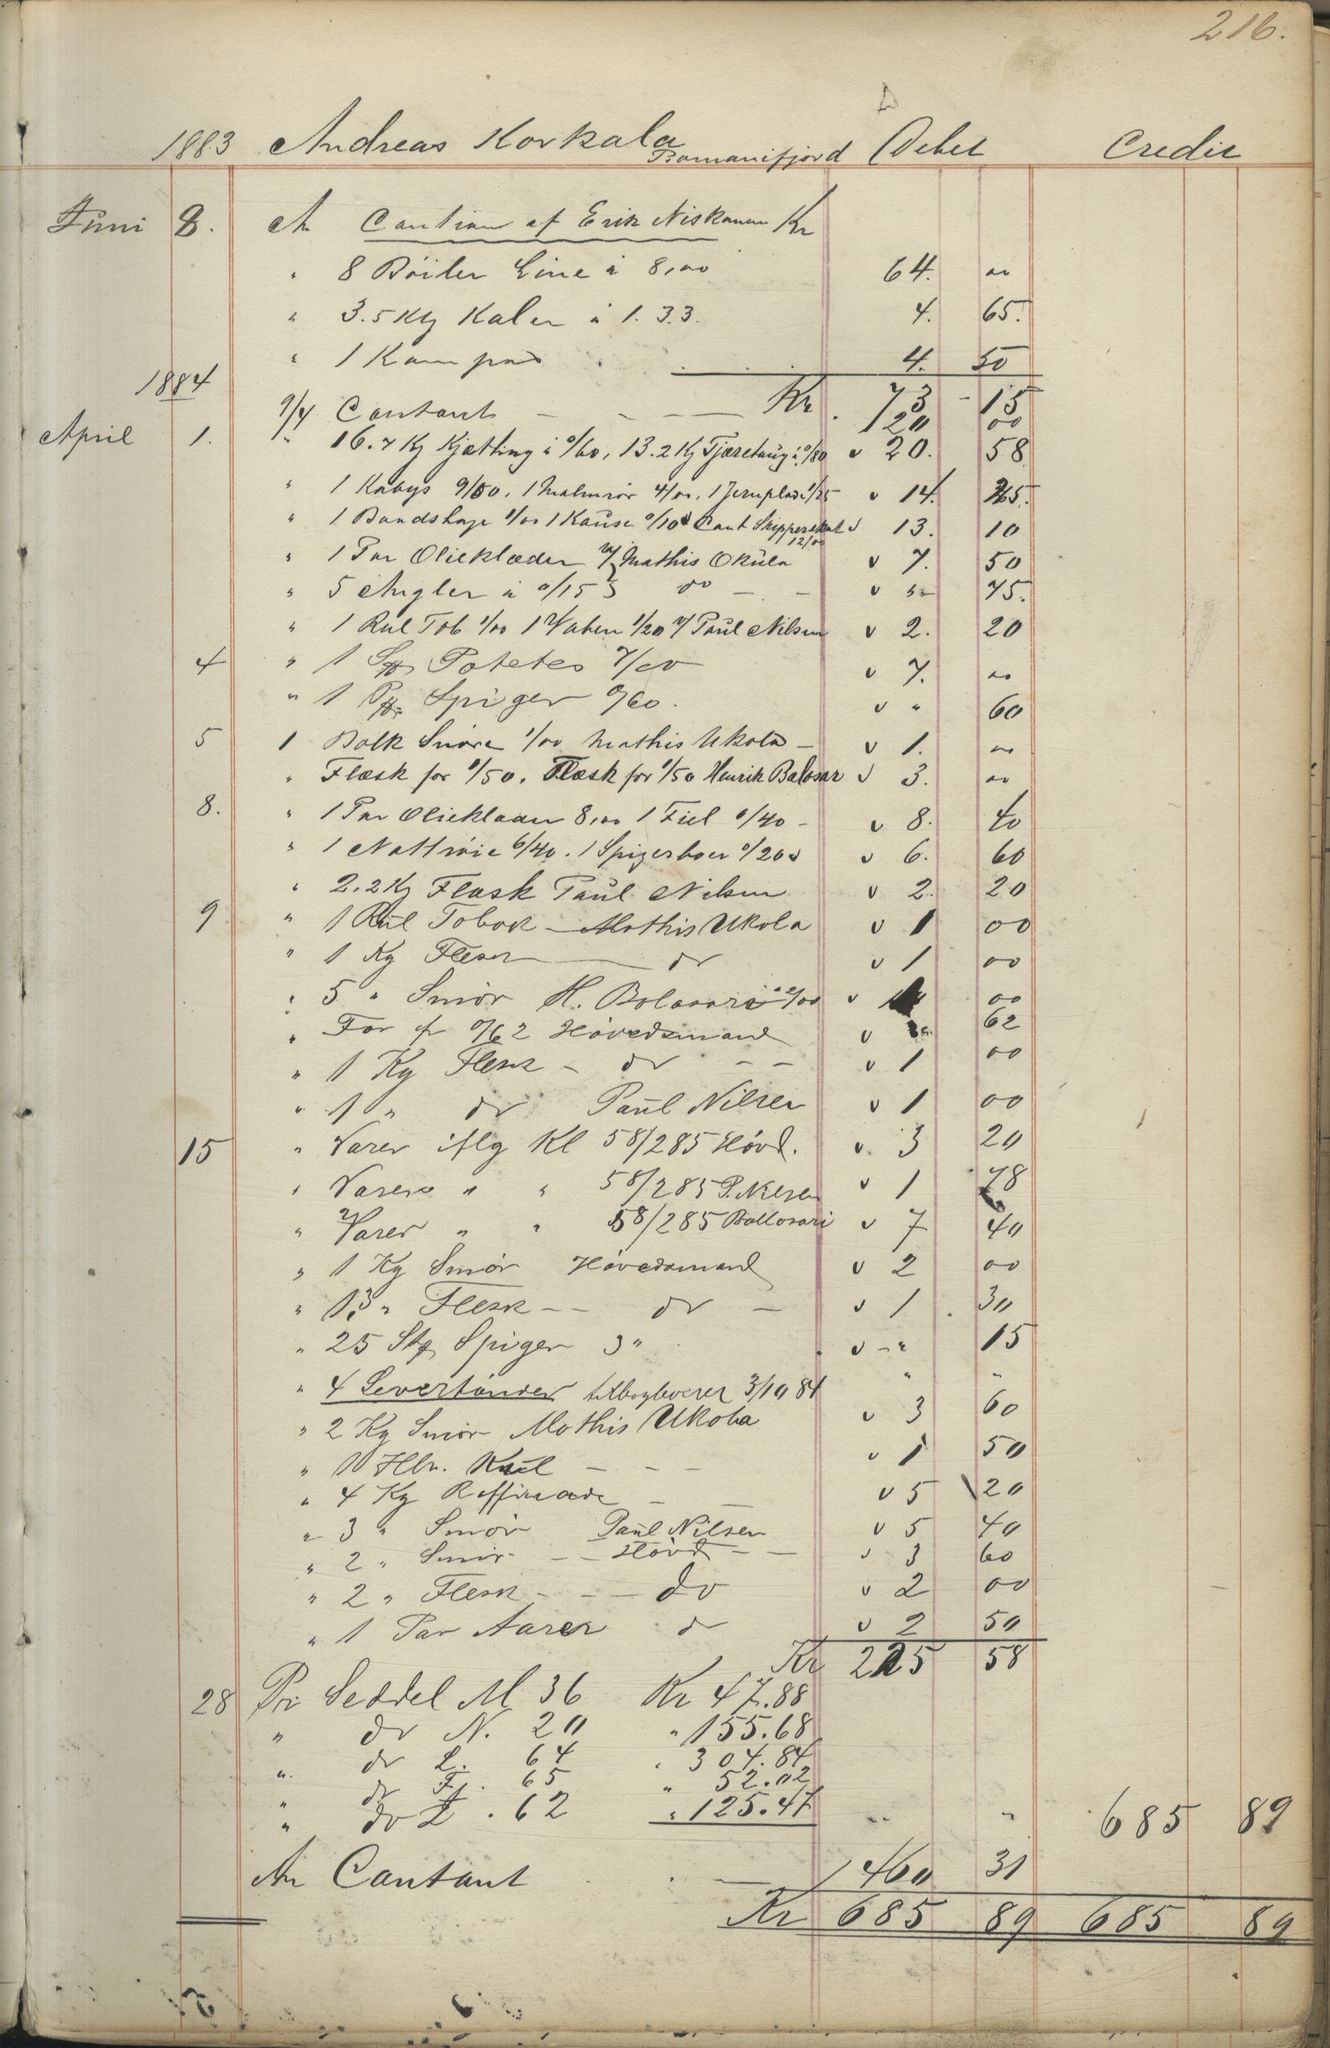 216.
1883 Andreas Korkala Bomanifjord Debet Credit
Juni 8. An Caution af Erik Niskanen Kr
" 8 Böiler Line à 8,00 64. 00
" 3.5 Kg Kaler à 1.33. 4. 65.
" 1 4. 50
1884
Kr. 73 15
9/4 Contant 120 00
April 1. " 16.7 Kg Kjætting à 0/60, 13.2 Kg Tjæretaug à 0/80 v 20. 58
" 1 Kabys 9/50, 1 Malmrör 4/00, 1 Jernplade 1/25 v 14. 75.
" 1 Baadshage 1/00 1 Kause 0/10 Cant Skipperskat 12/00 v 13. 10
" 1 Par Olieklæder Mathis Okula v 7. 50
" 5 Angler à 0/15 do v " 75.
" 1 Rul Tob 1/00 1 1/20 Paul Nilsen v 2. 20
4 " 1 Potetes 7/00 v 7. 00
" 1 Spiger 0/60. v " 60
5 1 Bolk Snöre 1/00 Mathis Ukola v 1. 00
" Flæsk for 1/50. Flæsk for 1/50 Henrik Balosar v 3. 00
8. " 1 Par Olieklæder 8,00 1 Fiil 0/40 v 8. 40
" 1 6/40. 1 Spigerboer 0/20 v 6. 60
" 2.2 Kg Flæsk Paul Nilsen v 2. 20
9 " 1 Rul Tobak Mathis Ukola v 1 00
" 1 Kg Flesk do v 1 00
" 5 " Smör H. Bolosari à 2/00 v 00
" For 0/62 Hövedsmand v " 62
" 1 Kg Flesk do v 1 00
" 1 " do Paul Nilsen v 1 00
15 " Varer iflg Kl 58/285 Hövd. v 3 20
" Varer " " 58/285 P. Nilsen v 1 78
" Varer " " 58/285 Ballosari v 7 40
" 1 Kg Smör Hövedsmand v 2 00
" 1.3 " Flesk do v 1 30
" 25 Stk Spiger 3" v " 15
" 4 Levertönder 3/10 84 " "
" 2 Kg Smör Mathis Ukola v 3 60
" 1 Hlv. Kul v 1 50
" 4 Kg Raffinade v 5 20
" 3 " Smör Paul Nilsen v 5 40
" 2 " Smör Hövd v 3 60
" 2 " Flesk do v 2 00
" 1 Par Aarer do v 2 50
Kr 225 58
28 Pr Seddel M 36 Kr 47.88
" do N. 20 " 155.68
" do L. 64 " 304.84
" do F. 65 " 52.02
" do L. 62 " 125.47 " " 685 89
An Contant 460 31
Kr 685 89 685 89